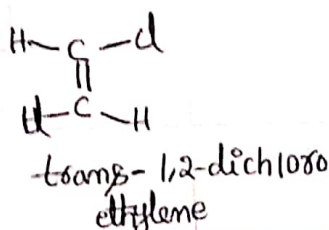 H C Cl
Cl C H
trans-1,2-dichloro
ethylene